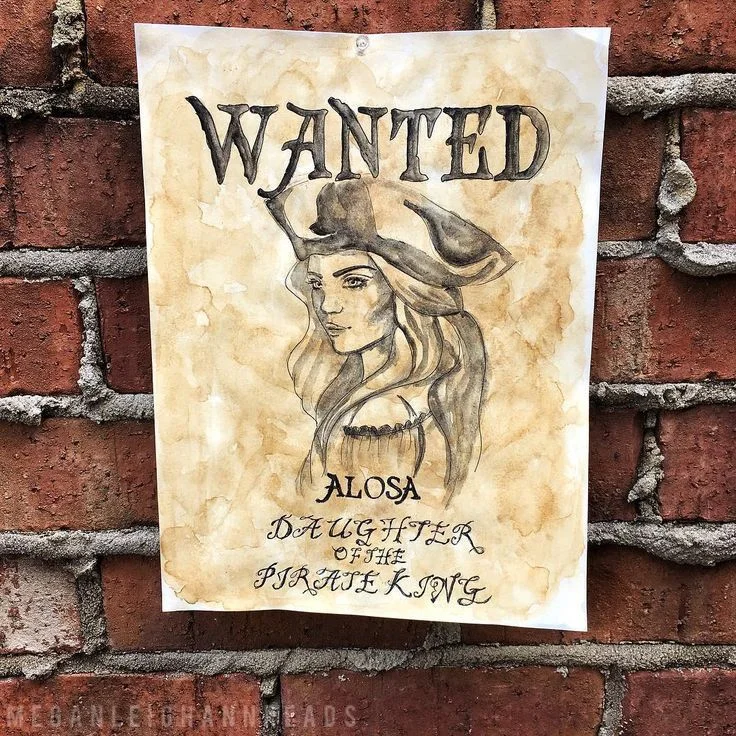 WANTED
ALOSA
DAUGHTER
OF THE
PIRATE KING
MEGANLEIGHANNREADS